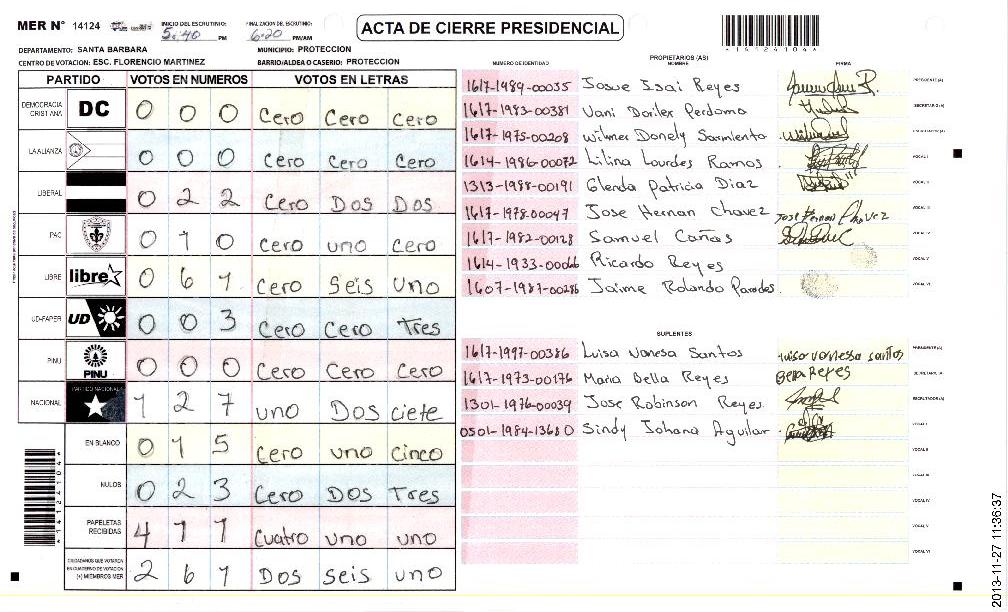 MER N° 14124
INICIO DEL ESCRUTINIO: 5:40 PM
FINALIZACION DEL ESCRUTINIO: 6:20 PM/AM
ACTA DE CIERRE PRESIDENCIAL
*14124104*
DEPARTAMENTO: SANTA BARBARA MUNICIPIO: PROTECCION
CENTRO DE VOTACION: ESC. FLORENCIO MARTINEZ BARRIO/ALDEA O CASERIO: PROTECCION
PARTIDO VOTOS EN NUMEROS VOTOS EN LETRAS
DEMOCRACIA CRISTIANA DC 0 0 0 Cero Cero Cero
LA ALIANZA 0 0 0 Cero Cero Cero
LIBERAL 0 2 2 Cero Dos Dos
PAC 0 1 0 Cero uno Cero
LIBRE libre 0 6 1 Cero Seis Uno
UD-FAPER UD 0 0 3 Cero Cero Tres
PINU PINU 0 0 0 Cero Cero Cero
NACIONAL PARTIDO NACIONAL 1 2 7 uno Dos ciete
EN BLANCO 0 1 5 Cero uno cinco
NULOS 0 2 3 Cero Dos Tres
PAPELETAS RECIBIDAS 4 1 1 Cuatro uno uno
CIUDADANOS QUE VOTARON EN CUADERNO DE VOTACION (+) MIEMBROS MER 2 6 1 Dos seis uno
*14124104*
PROPIETARIOS (AS)
NUMERO DE IDENTIDAD NOMBRE FIRMA
1617-1989-00035 Josue Isai Reyes PRESIDENTE(A)
1617-1983-00381 Vani Dorilex Perdomo SECRETARIO(A)
1617-1975-00208 Wilmer Donely Sarmiento ESCRUTADOR(A)
1614-1986-00072 Lilina Lourdes Ramos VOCAL I
1313-1988-00191 Glenda Patricia Diaz VOCAL II
1617-1978-00047 Jose Hernan Chavez Jose Hernan Chavez VOCAL III
1617-1982-00128 Samuel Cañas VOCAL IV
1614-1933-00066 Ricardo Reyes VOCAL V
1607-1987-00286 Jaime Rolando Paredes VOCAL VI
SUPLENTES
1617-1997-00386 Luisa Vanesa Santos Luisa Vanessa Santos PRESIDENTE(A)
1617-1973-00176 Maria Bella Reyes Bella Reyes SECRETARIO(A)
1301-1976-00039 Jose Robinson Reyes ESCRUTADOR(A)
0501-1984-13680 Sindy Johana Aguilar VOCAL I
VOCAL II
VOCAL III
VOCAL IV
VOCAL V
VOCAL VI
2013-11-27 11:36:37